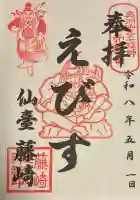 奉拝
令和八年五月一日
えびす
仙臺 藤崎
藤崎